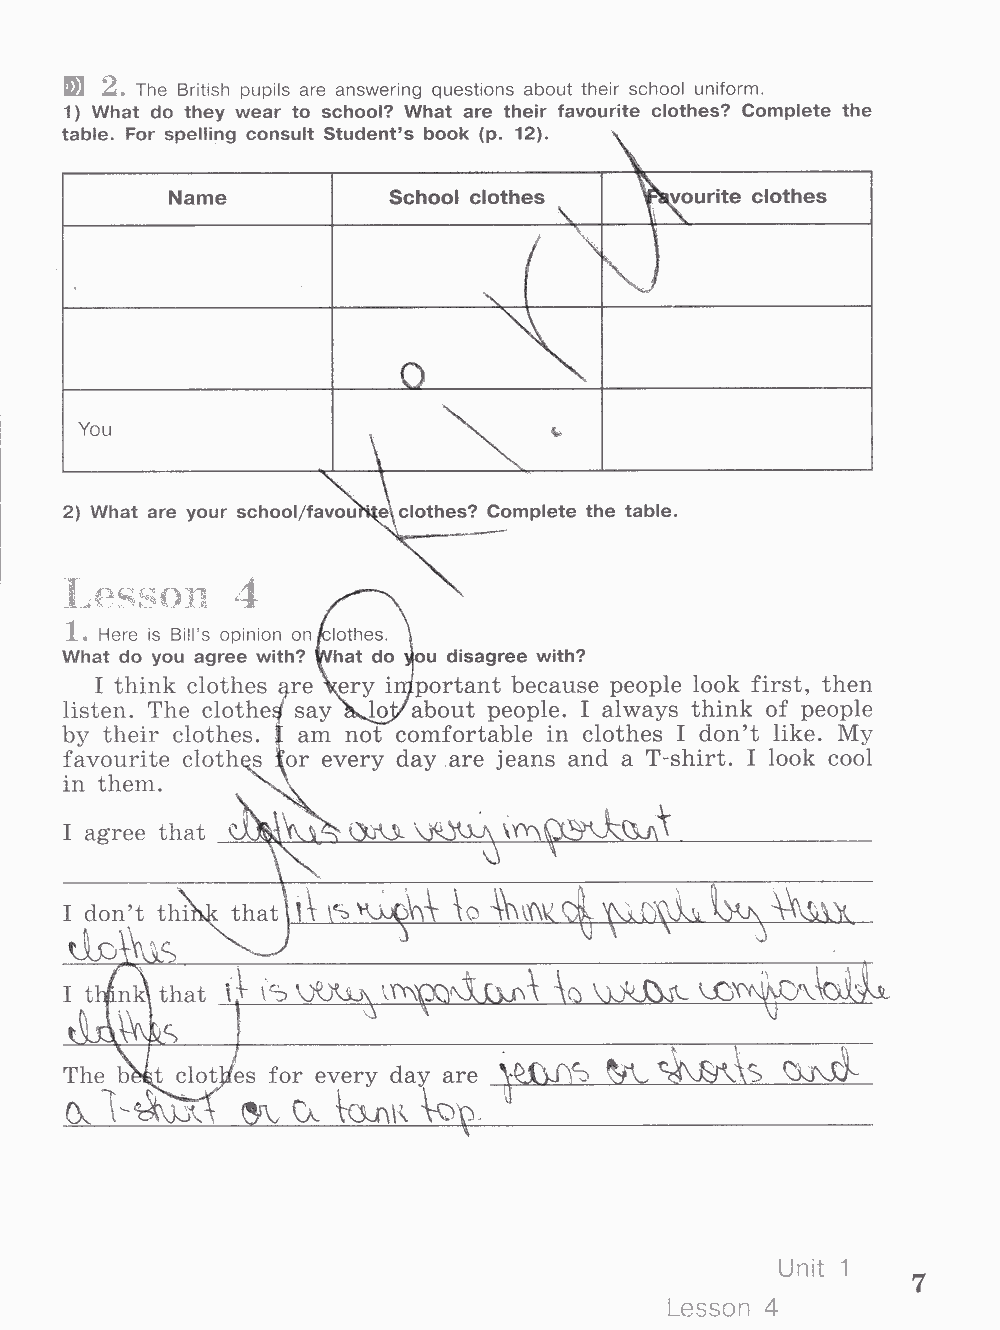 2. The British pupils are answering questions about their school uniform.
1) What do they wear to school? What are their favourite clothes? Complete the
table. For spelling consult Student's book (p. 12).
Name School clothes Favourite clothes
You
2) What are your school/favourite clothes? Complete the table.
Lesson 4
1. Here is Bill's opinion on clothes.
What do you agree with? What do you disagree with?
I think clothes are very important because people look first, then
listen. The clothes say a lot about people. I always think of people
by their clothes. I am not comfortable in clothes I don't like. My
favourite clothes for every day are jeans and a T-shirt. I look cool
in them.
I agree that clothes are very important
I don't think that it is right to think of people by their
clothes
I think that it is very important to wear comfortable
clothes
The best clothes for every day are jeans or shorts and
a T-shirt or a tank top.
Unit 1
7
Lesson 4